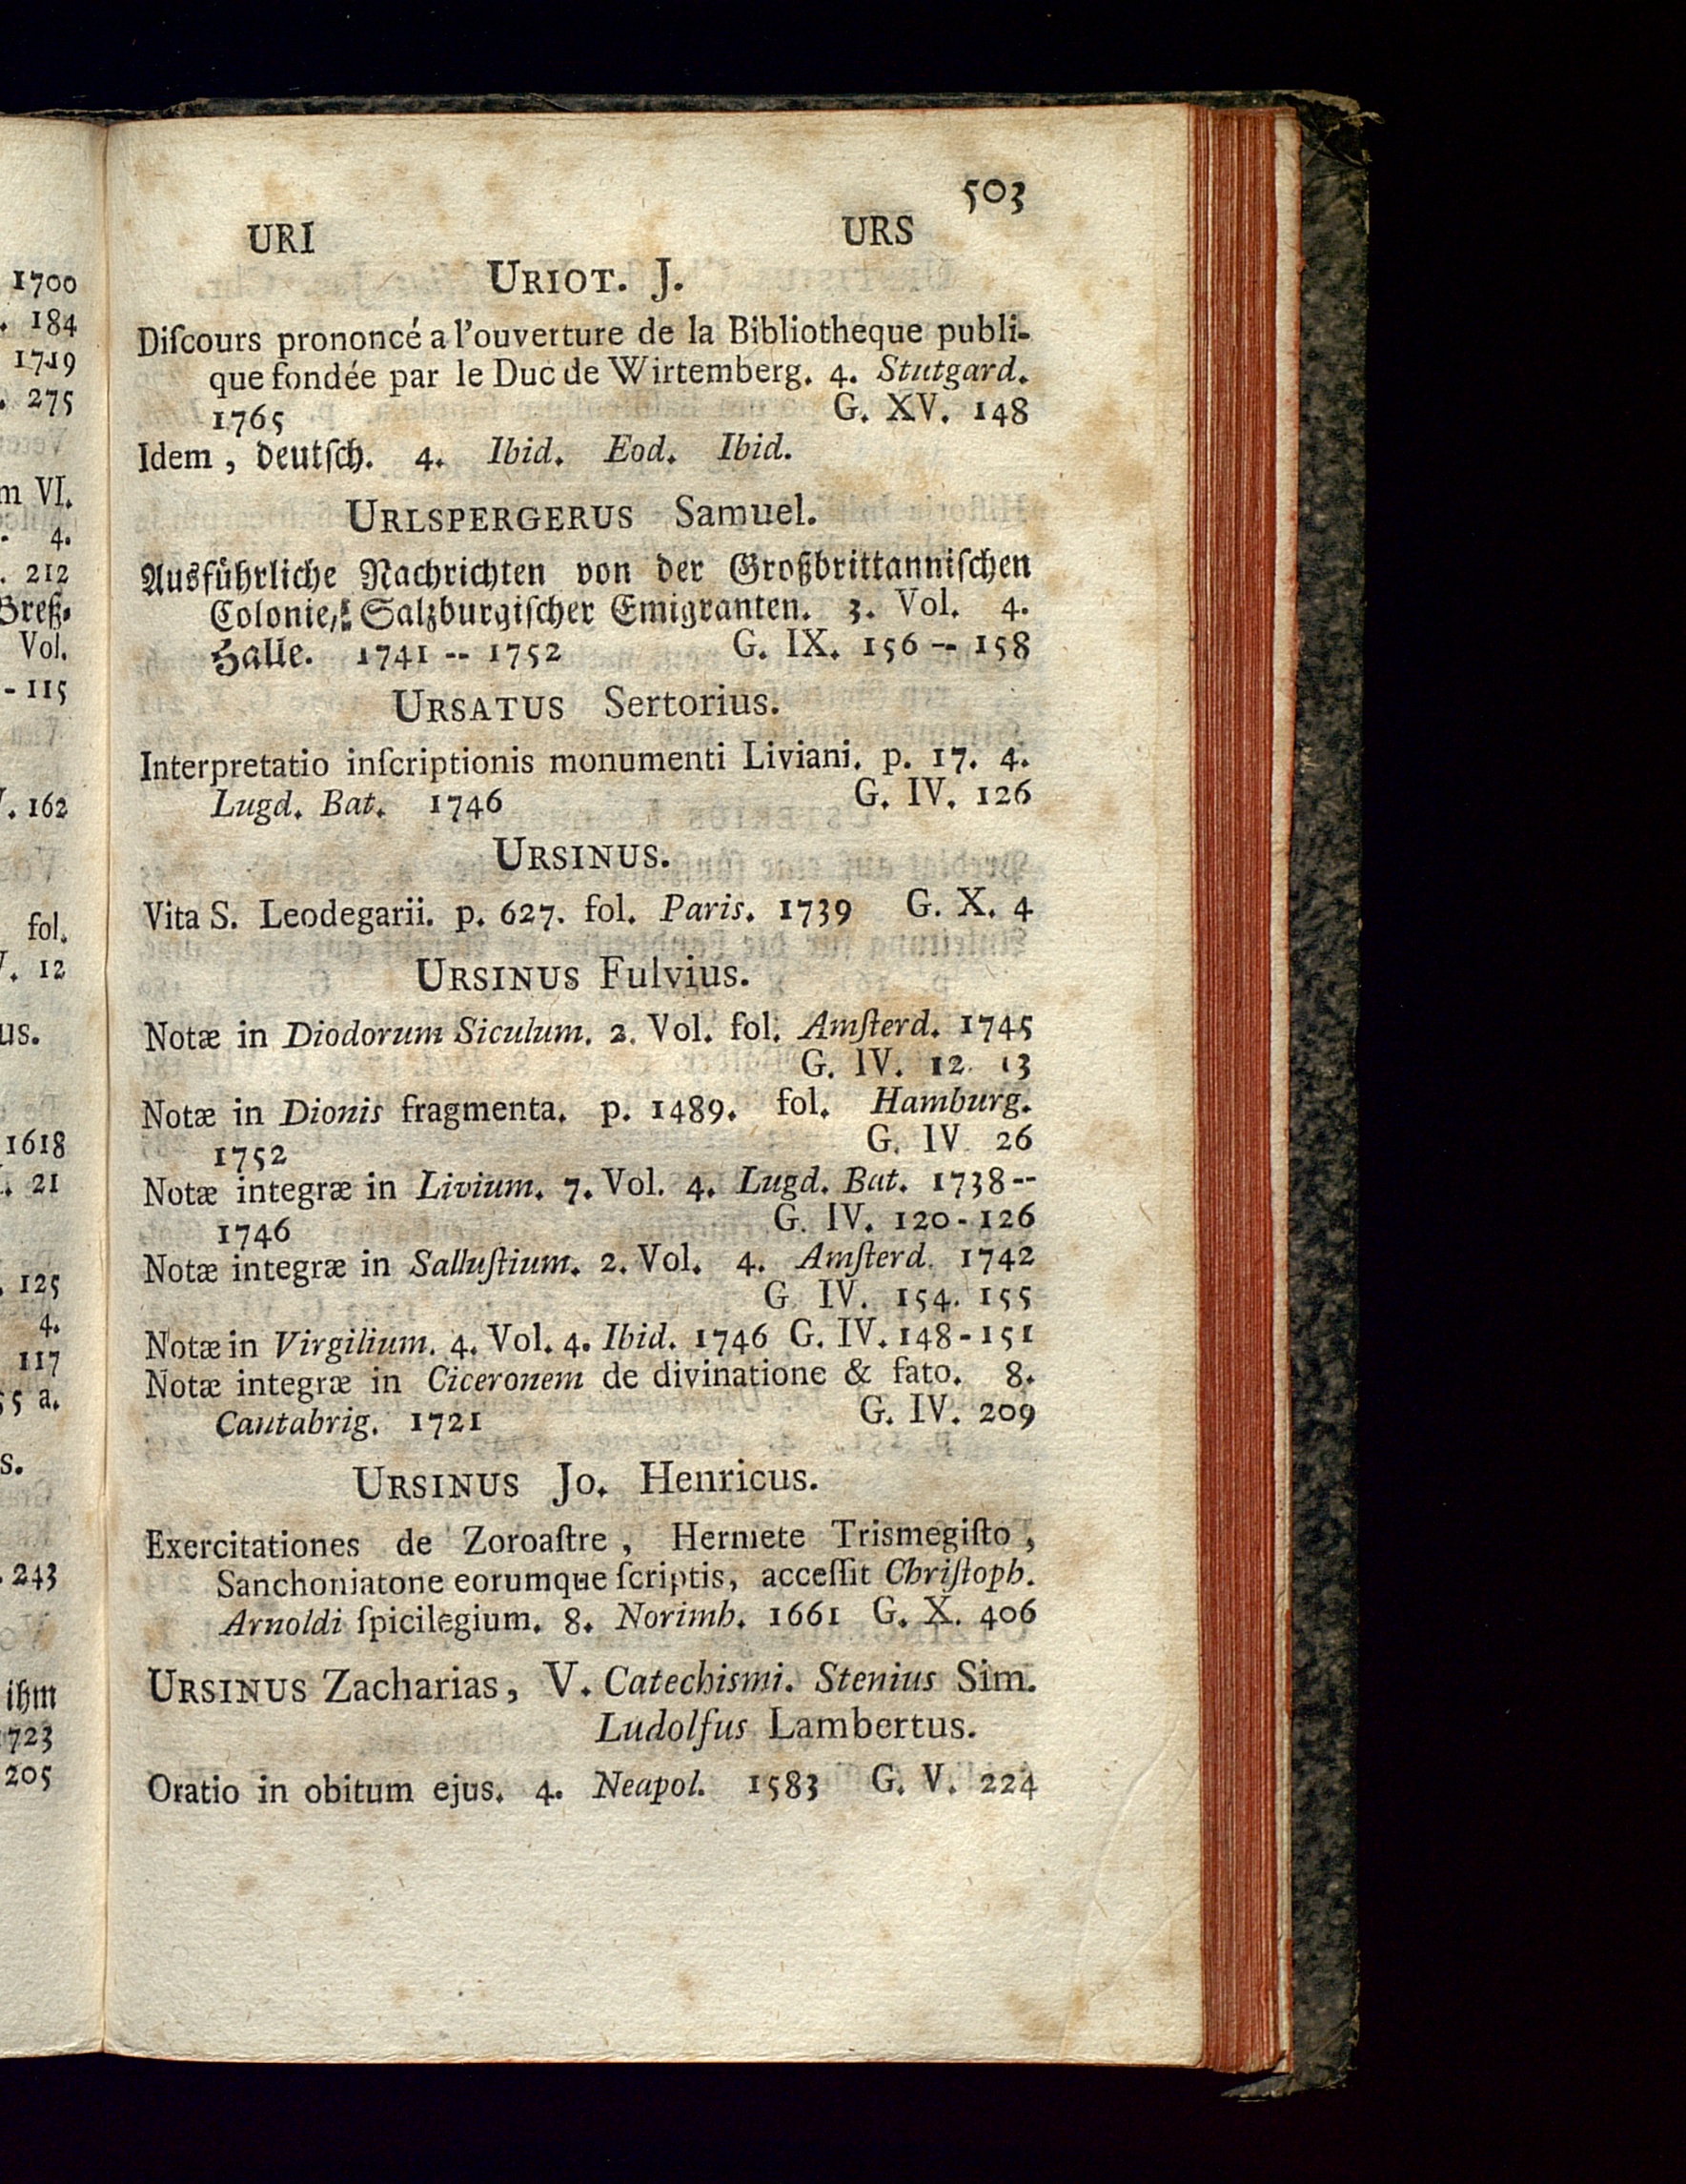 1700
. 184
1719
. 275
m VI.
- 4.
. 212
Greß-
Vol.
- 115
. 162
fol.
. 12
us.
1618
. 21
. 125
4.
117
55 a.
s.
. 243
ihm
1723
205
503
URI URS
URIOT. J.
Diſcours prononcé a l'ouverture de la Bibliotheque publi-
que fondée par le Duc de Wirtemberg. 4. Stutgard.
1765 G. XV. 148
Idem, deutſch. 4. Ibid. Eod. Ibid.
URLSPERGERUS Samuel.
Ausführliche Nachrichten von der Großbrittanniſchen
Colonie, Salzburgiſcher Emigranten. 3. Vol. 4.
Halle. 1741 -- 1752 G. IX. 156 -- 158
URSATUS Sertorius.
Interpretatio inſcriptionis monumenti Liviani. p. 17. 4.
Lugd. Bat. 1746 G. IV. 126
URSINUS.
Vita S. Leodegarii. p. 627. fol. Paris. 1739 G. X. 4
URSINUS Fulvius.
Notæ in Diodorum Siculum. 2. Vol. fol. Amſterd. 1745
G. IV. 12. 13
Notæ in Dionis fragmenta. p. 1489. fol. Hamburg.
1752 G. IV. 26
Notæ integræ in Livium. 7. Vol. 4. Lugd. Bat. 1738--
1746 G. IV. 120-126
Notæ integræ in Salluſtium. 2. Vol. 4. Amſterd. 1742
G. IV. 154. 155
Notæ in Virgilium. 4. Vol. 4. Ibid. 1746 G. IV. 148-151
Notæ integræ in Ciceronem de divinatione & fato. 8.
Cantabrig. 1721 G. IV. 209
URSINUS Jo. Henricus.
Exercitationes de Zoroaſtre, Hermete Trismegiſto,
Sanchoniatone eorumque ſcriptis, acceſſit Chriſtoph.
Arnoldi ſpicilegium. 8. Norimb. 1661 G. X. 406
URSINUS Zacharias, V. Catechismi. Stenius Sim.
Ludolfus Lambertus.
Oratio in obitum ejus. 4. Neapol. 1583 G. V. 224